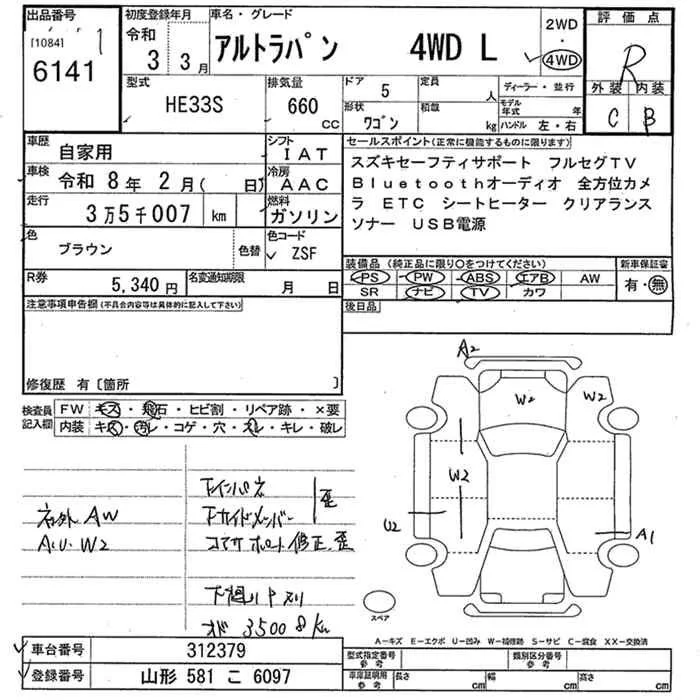 出品番号
[1084] 1
6141
初度登録年月
令和 3 3月
車名・グレード
アルトラパン 4WD L
2WD
・
4WD
評価点
R
外装 内装
C B
型式
HE33S
排気量
660 cc
ドア 5
形状 ワゴン
定員 人
積載 kg
ディーラー・並行
モデル年式 年
ハンドル 左・右
車歴 自家用
シフト IAT
車検 令和 8年 2月( 日)
冷房 AAC
走行 3万5千007 km
燃料 ガソリン
色 ブラウン 色替
色コード ZSF
R券 5,340円
名変通知期限 月 日
セールスポイント(正常に機能するものに限ります)
スズキセーフティサポート フルセグTV
Bluetoothオーディオ 全方位カメ
ラ ETC シートヒーター クリアランス
ソナー USB電源
装備品(純正品に限り○をつけてください) 新車保証書
PS PW ABS エアB AW 有・無
SR ナビ TV カワ
後日品
注意事項申告欄(不具合内容等は具体的に記入して下さい)
修復歴 有〔箇所 〕
検査員記入欄
FW キズ・飛石・ヒビ割・リペア跡・×要
内装 キズ・汚レ・コゲ・穴・スレ・キレ・破レ
社外AW
A.U.W2
下インパネ
下サイドメンバー 歪
コアサポート修正、歪
下廻りPスリ
メダ 35008km
A2
W2
W2
W2
U2
A1
スペア
A−キズ E−エクボ U−凹み W−補修跡 S−サビ C−腐食 XX−交換済
車台番号 312379
登録番号 山形 581 こ 6097
型式指定番号 参考
類別区分番号 参考
車庫証明用 参考 長さ cm 幅 cm 高さ cm